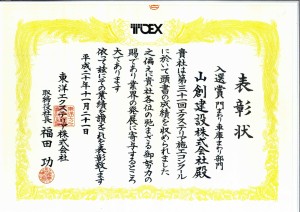 TOEX
表彰状
入選賞 門まわり 車庫まわり部門
山創建設株式会社殿
貴社は第二十一回エクステリア施工コンクール
に於いて頭書の成績を収められました
之偏えに貴社各位の弛まざる御努力の
賜であり業界の発展に寄与するところ
大であります
依って茲にその業績を讃えこれを表彰致します
平成二十年十一月二十一日
東洋エクステリア株式会社
取締役社長 福田 功